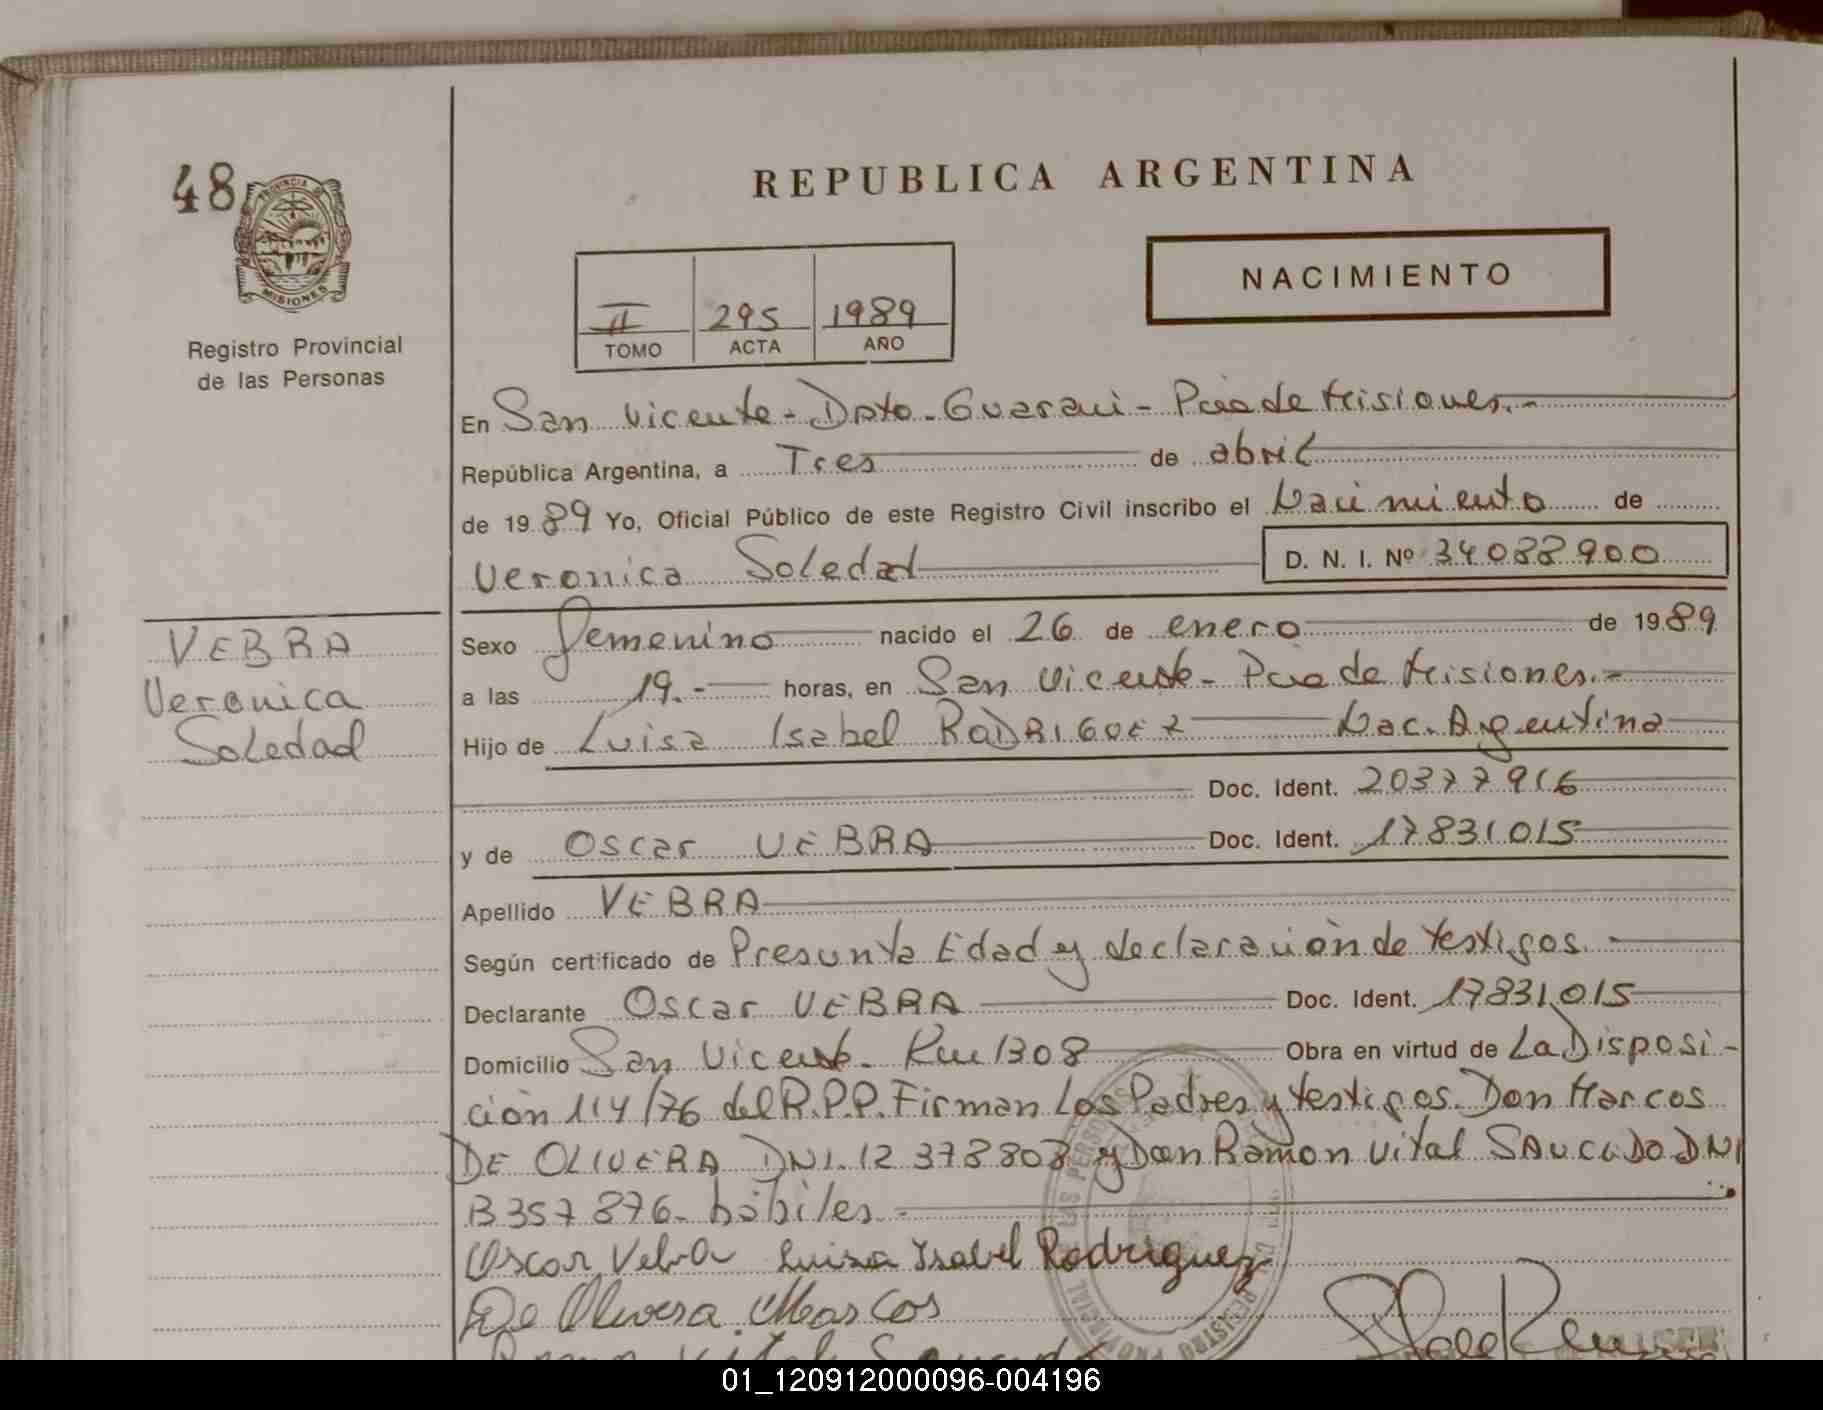 48
PROVINCIA DE
MISIONES
Registro Provincial
de las Personas
REPUBLICA ARGENTINA
NACIMIENTO
II 295 1989
TOMO ACTA AÑO
En San Vicente - Dpto - Guarani - Pcia de Misiones.-
República Argentina, a Tres de abril
de 1989 Yo, Oficial Público de este Registro Civil inscribo el Nacimiento de
Veronica Soledad D. N. I. Nº 34088900
VEBRA
Veronica
Soledad
Sexo Femenino nacido el 26 de enero de 1989
a las 19.- horas, en San Vicente - Pcia de Misiones.-
Hijo de Luisa Isabel RODRIGUEZ Nac. Argentina
Doc. Ident. 20377916
y de Oscar VEBRA Doc. Ident. 17831015
Apellido VEBRA
Según certificado de Presunta Edad y declaración de testigos.
Declarante Oscar VEBRA Doc. Ident. 17831015
Domicilio San Vicente - Km 1308 Obra en virtud de La Disposi-
ción 114/76 del R.P.P. Firman Los Padres y testigos. Don Marcos
DE OLIVERA DNI. 12 378808 y Don Ramon Vital SAUCEDO DNI
8357876- hábiles-
Oscar Vebra Luisa Isabel Rodriguez
De Olivera Marcos
01_120912000096-004196